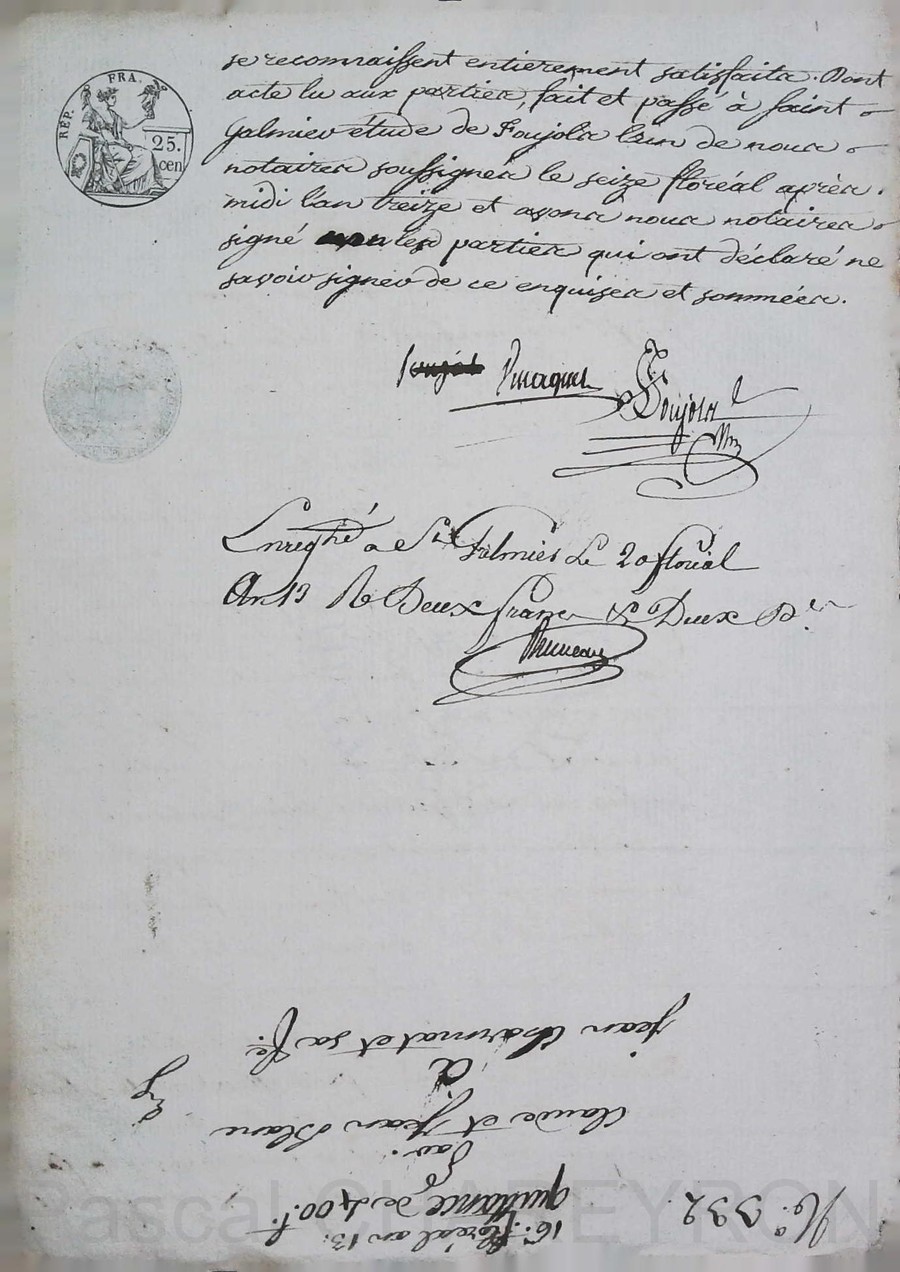 RÉP. FRA.
25.
cen
se reconnaissent entierement satisfaits. Dont
acte lu aux parties, fait et passé à saint
galmier étude de Foujols l'un de nous
notaires soussignés le seize floréal après
midi l'an treize et avons nous notaires
signé les parties qui ont déclaré ne
savoir signer de ce enquises et sommées.
Foujols
Enreg.tré a St Galmier Le 20 floréal
An 13 Re Deux francs & Deux
jean Charmat et sa fe.
à
Claude et jean Blanc
Par
quittance de 400 f.
16e. floréal an 13.
No. 332
Pascal CHAPEYRON